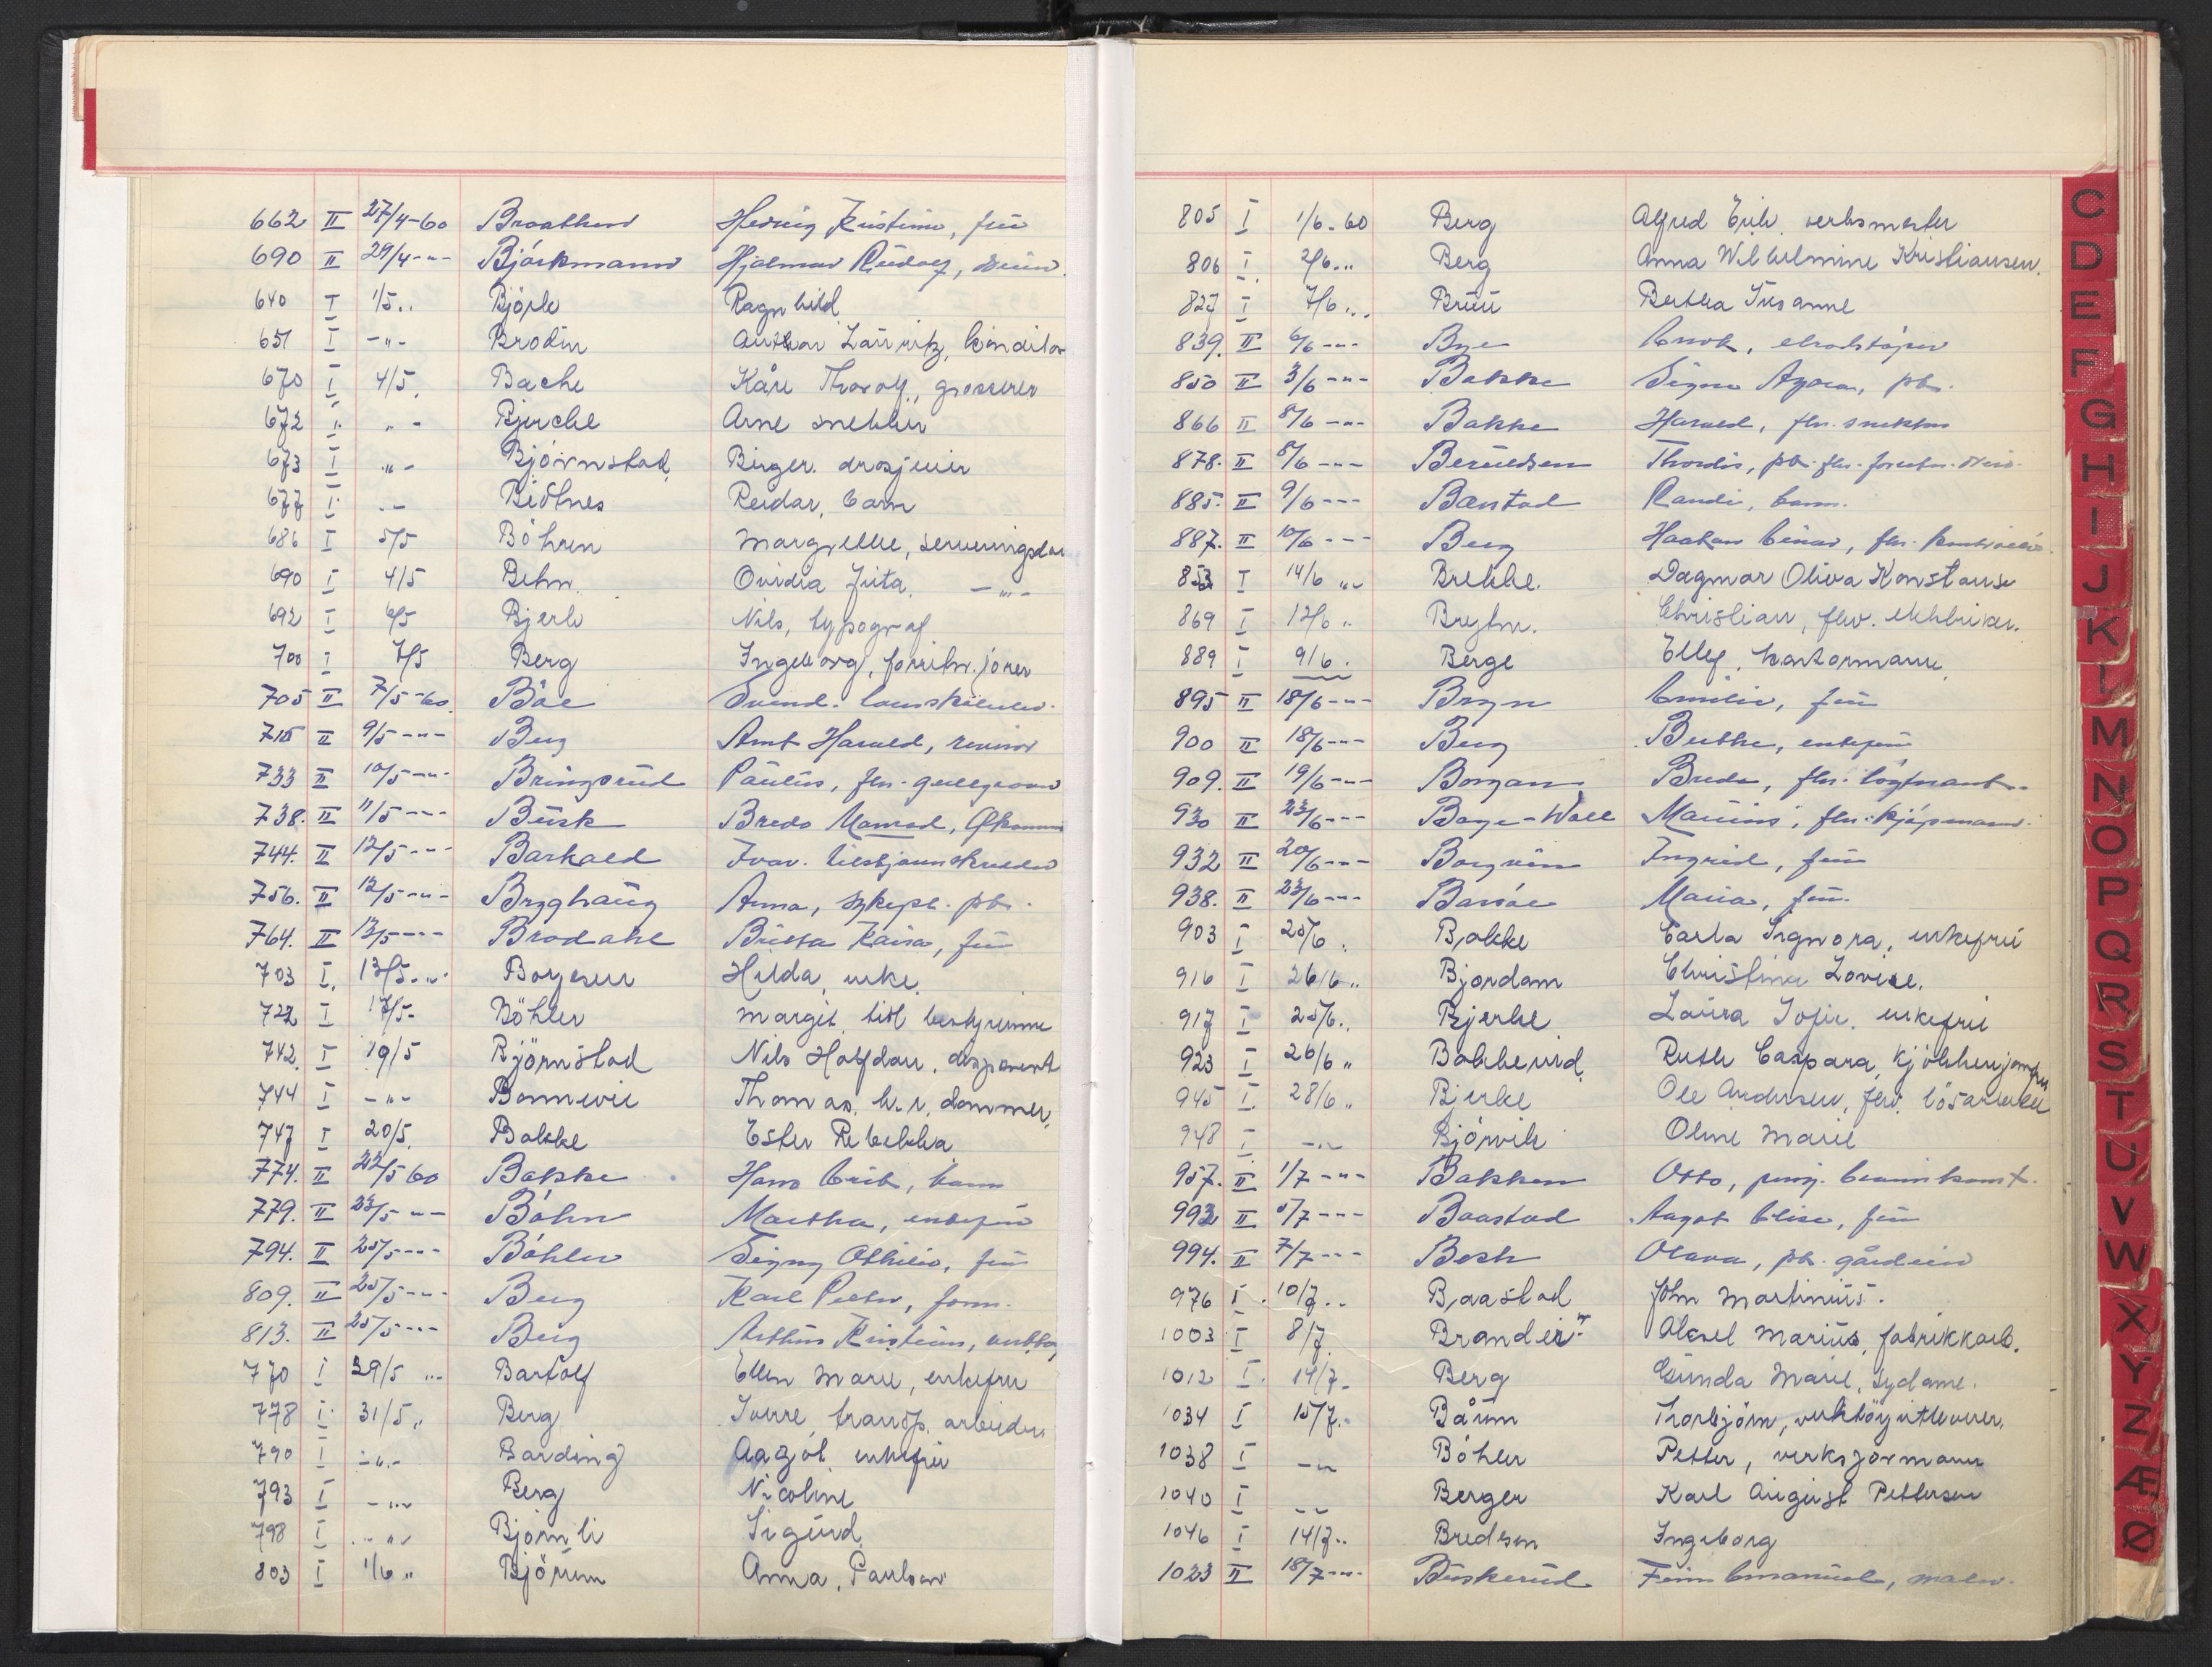 662 II 27/4-60 Braathen Hedvig Kristine, frü
690 II 29/4-"- Björkmann Hjalmar Rüdolf,
640 I 1/5.. Björk Ragnhild
651 I -"- Brodin Laüritz, konditor
670 I 4/5. Bache Kåre Thorolf, grosserer
672 I " - Bjercke Arne snekker
673 I "- Bjørnstad Birger. drosjeeier
677 I .- Reidar, barn
686 I 5/5 Böhren Margrethe, serveringsdame
690 I 4/5 Behn Ovidia Juta. -"-
692 I 6/5 Bjerk Nils, typograf
700 I 7/5 Berg Ingeborg,
705 II 7/5-60. Böe Svend.
715 II 9/5-"- Berg Arnt Harald, revisor
733 II 10/5-"- Bringsrüd Paülüs, fhv.
738. II 11/5--- Büsk Bredo
744. II 12/5-"- Barkald Ivar.
756. II 12/5-"- Bryghaüg Anna, sykepl. pb.
764. II 13/5--- Brodahl Kaisa, frü
703 I. 13/5.". Borgesen Hilda, enke.
722 I 17/5- Böhler Margit,
742. I 19/5 Björnstad Nils Halfdan, disponent
744 I -"- Bonnevie Thomas. h.r. dommer,
747 I 20/5. Bakke Ester Rebekka
774. II 22/5 60 Bakke Hans Erik, barn
779. II 23/5 "- Böhn Martha, enkefrü
794. II 25/5--- Böhler Signy Othilie, frü
809. II 25/5-"- Berg Karl Peder, form.
813. II 25/5--- Berg Arthür Kristian,
770 I 29/5 "- Bartolf Ellen Marie, enkefru
778 I 31/5" Berg Sverre, transp. arbeider.
790 I -"- Barding Aagot, enkefrü
793 I -"- Berg Nicoline
798 I -"- Bjørnli Sigürd
803 I 1/6 " Björum Anna, Paulsen
805 I 1/6-60 Berg Alfred Erik, verksmester
806 I 2/6.. Berg Anna Wilhelmine Kristiansen.
827 I 7/6... Brüü Bertha Susanne
839. II 6/6-"- Bye
850 II 3/6-"- Bakke pb.
866 II 8/6-"- Bakke Harald, fhv. snekker
878. II 8/6-"- Berüldsen Thordis, pb.
885. II 9/6--- Randi, barn.
887. II 10/6--- Berg Haakon Einar, fhv.
853 I 14/6 " Brekke. Dagmar Oliva Konstanse
869 I 12/6 " Christian, fhv.
889 I 9/6. Berge Ellef, kontormann,
895 II 18/6-"- Bryn Emilie, frü
900 II 18/6--- Berg Berthe, enkefrü
909. II 19/6-"- Borgan
930 II 23/6--- fhv. kjøpmann.
932 II 20/6--- Ingrid, frü
938. II 23/6--- Maria, frü.
903 I 25/6. Bakke Carla Signora, enkefrü
916 I 26/6.. Bjordam Christina Lovise.
917 I 25/6.. Bjerke Laüra Sofie. enkefrü
923 I 26/6 " Bakkerüd Ruth Caspara, kjökkenjomfru
945 I 28/6 " Bjerke Ole Andersen, fhv. løsarbeider
948 I -"- Bjørvik Oline Marie
957. II 1/7-"- Bakken Otto,
993 II 5/7--- Baastad Aagot Elise, frü
994. II 7/7--- Olava, pb.
976 I. 10/7.. Baastad John Martiniüs.
1003 I 8/7. Brandeir" Aksel Mariüs, fabrikkarb.
1012 I. 14/7- Berg Günda Marie, sydame.
1034 I 15/7.. Bårün Thorbjörn, verktøyutleverer.
1038 I -" Böhler Petter, verksformann
1040 I -- Berger Karl Aügüst Pettersen
1046 I 14/7.. Bredesen Ingeborg
1023 II 18/7-"- Büskerüd Finn Emanüel, maler.
C
D
E
F
G
H
I
J
K
L
M
N
O
P
Q
R
S
T
U
V
W
X
Y
Z
Æ
Ø